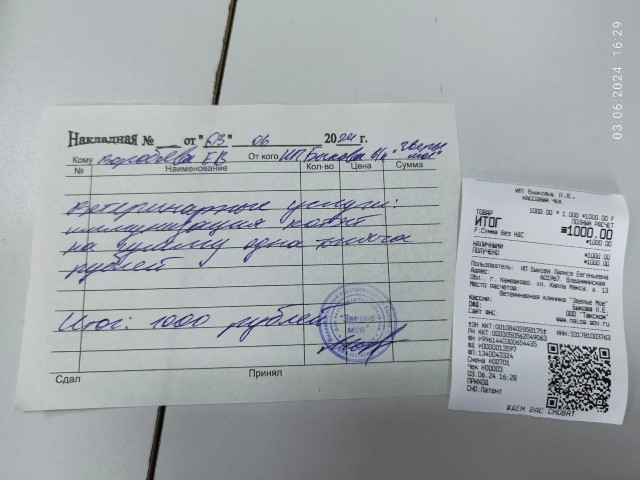 03.06.2024 16:29
Накладная № от "03" 06 2024 г.
Кому Воробьева ЕВ От кого ИП Быкова в/к "Зверье мое"
№ Наименование Кол-во Цена Сумма
Ветеринарные услуги:
иммунизация котят
на сумму одна тысяча
рублей
Итог: 1000 рублей
"Зверье мое"
Сдал Принял
ИП Быкова Л.Е.
КАССОВЫЙ ЧЕК
ТОВАР 1000.00 * 1.000 =1000.00
ПОЛНЫЙ РАСЧЕТ
ИТОГ =1000.00
Сумма без НДС =1000.00
НАЛИЧНЫМИ =1000.00
ПОЛУЧЕНО =1000.00
Пользователь: ИП Быкова Лариса Евгеньевна
Адрес: 601967, Владимирская
Обл., г. Камешково, ул. Карла Маркса, д. 13
Место расчетов:
Ветеринарная клиника "Зверье Мое"
Кассир: Быкова Л.Е.
ОФД: ООО "Такском"
Сайт ФНС: www.nalog.gov.ru
ИНН:331781003763
ФД #0000013597
ФП:1340043324
Смена #00701
Чек #00003
03.06.24 16:28
ПРИХОД
СНО:Патент
ЖДЕМ ВАС СНОВА!